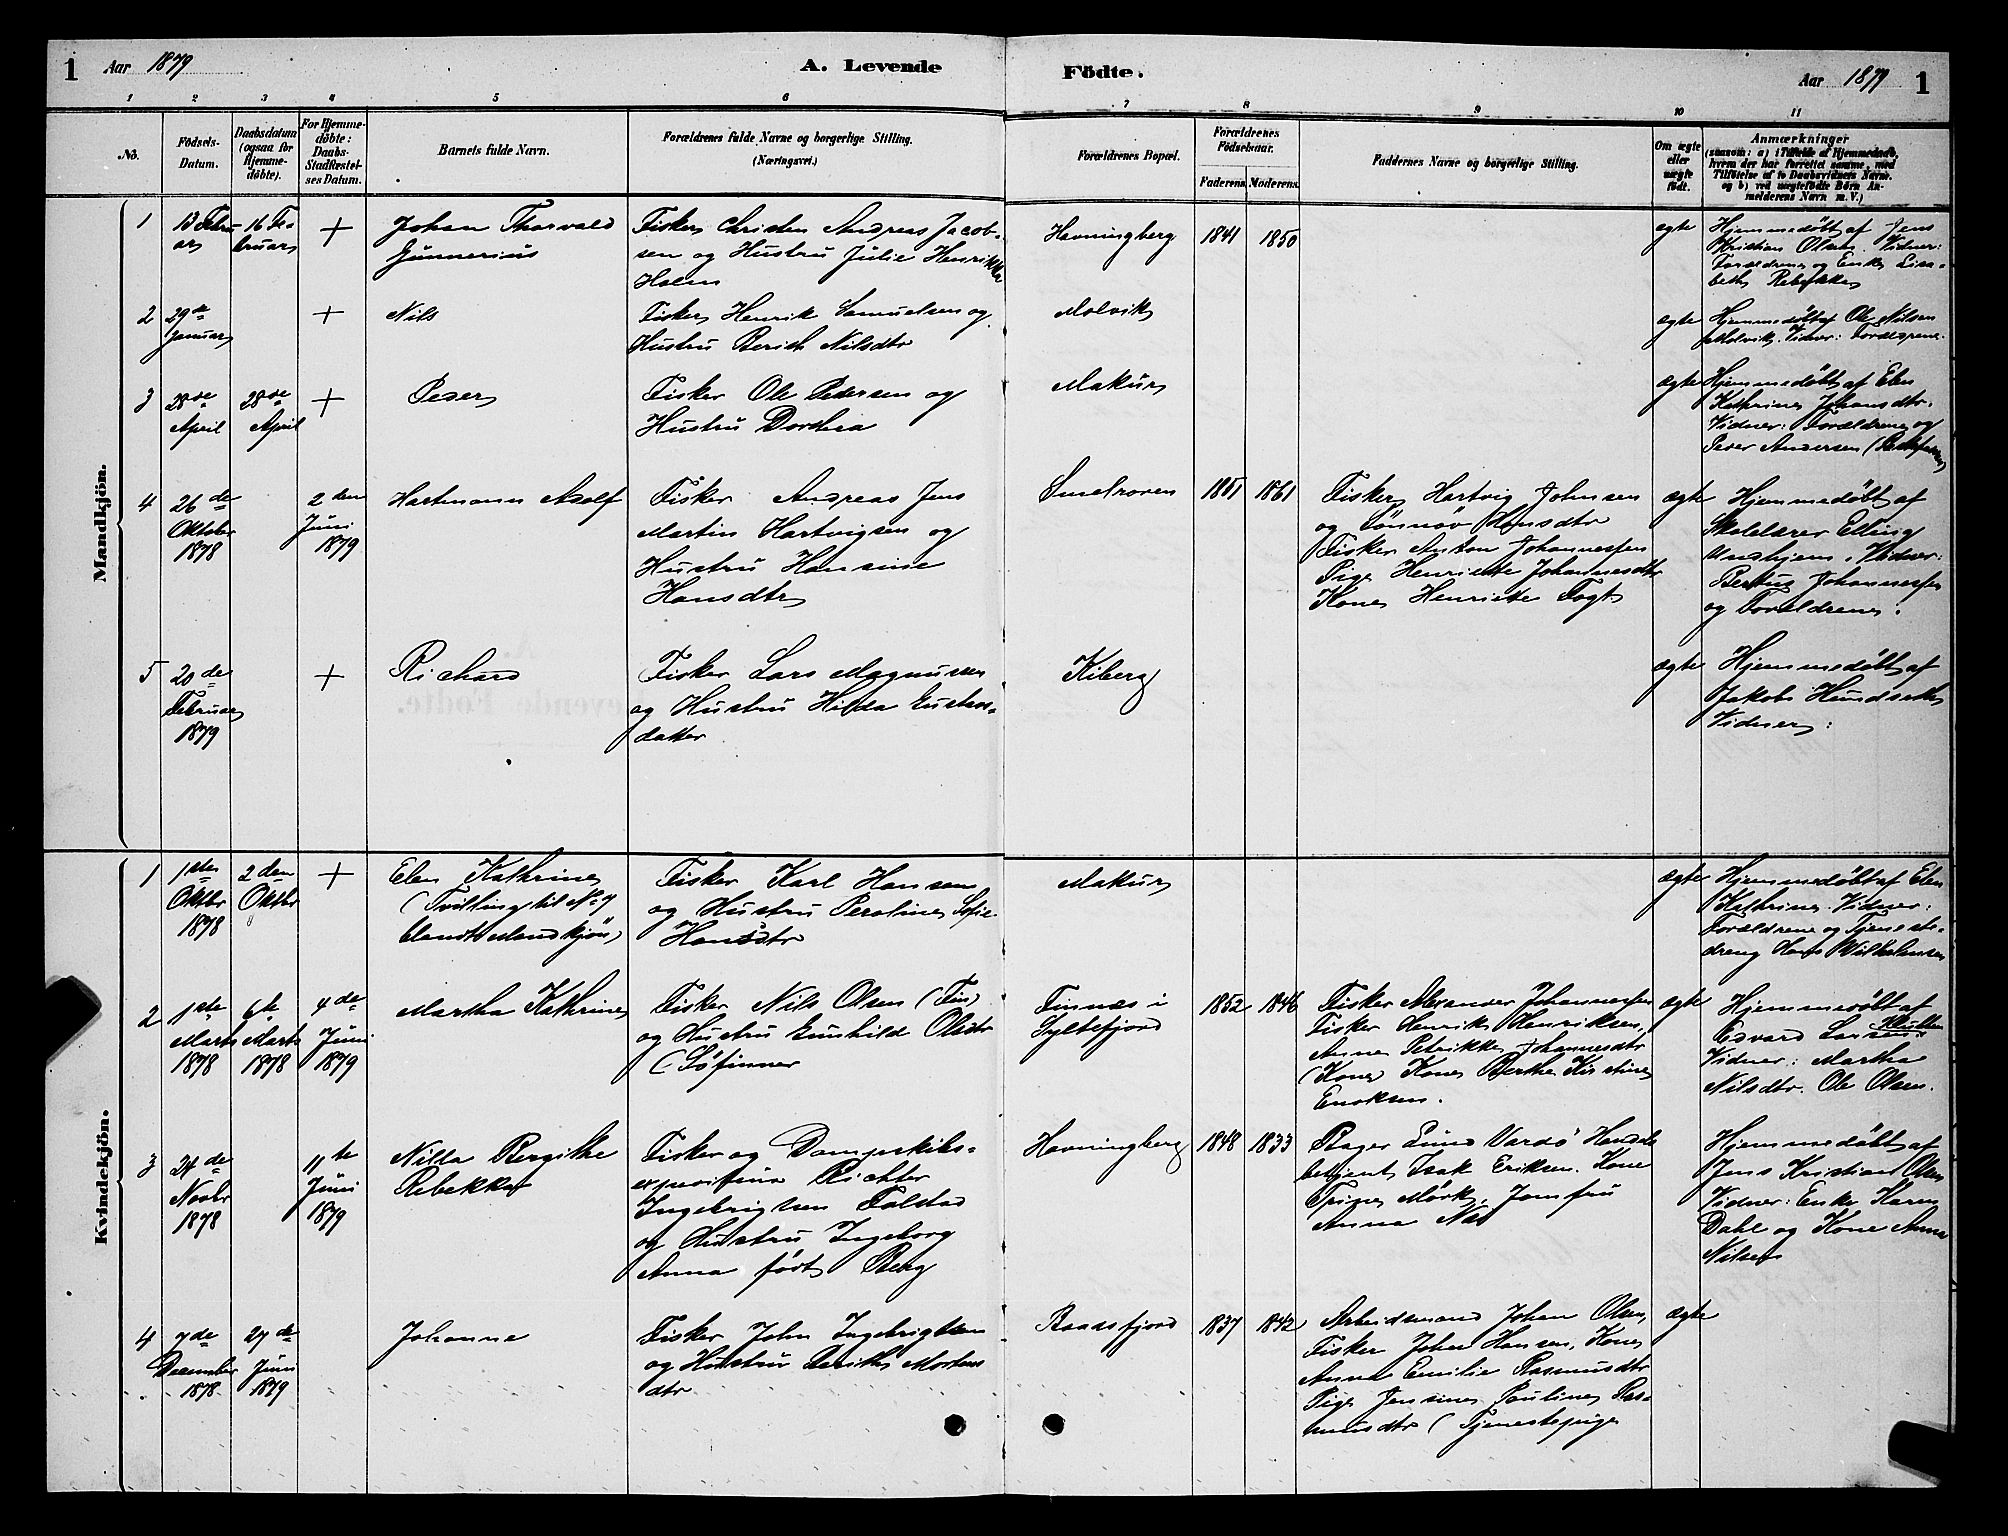 1 Aar 1879 A. Levende Födte. Aar 1879 1
1 2 3 4 5 6 7 8 9 10 11
No. Födsels-Datum. Daabsdatum (ogsaa for Hjemme-döbte). For Hjemme-döbte: Daabs-Stadfæstel-ses Datum. Barnets fulde Navn. Forældrenes fulde Navne og borgerlige Stilling. (Næringsvei.) Forældrenes Bopæl. Forældrenes Födselsaar. Faderens. Moderens. Faddernes Navne og borgerlige Stilling. Om ægte eller uægte födt. Anmærkninger (saasom: a) i Tilfælde af Hjemmedaab, hvem der har forrettet samme, med Tilföielse af to Daabsvidners Navne, og b) ved uægtefödte Börn An-melderens Navn m. V.)
Mandkjön.
1
13 Febru
ar
16 Fe-
bruar
+
Johan Thorvald
Gunnerius
Fisker Christen Andreas Jacob-
sen og Hustru Julie Henrikke
Holm
Havningberg
1841
1850
ægte
Hjemmedøbt af Jens
Kristian Olsen. Vidner:
Forældrene og Enke Lisa-
beth Rebekka
2
29de
Januar
+
Nils
Fisker Henrik Samuelsen og
Hustru Berith Nilsdtr
Molvik
ægte
Hjemmedøbt af Ole Nilsen
Molvik. Vidner: Forældrene
3
28de
April
28de
April
+
Peder
Fisker Ole Pedersen og
Hustru Dorthea
Makur
ægte
Hjemmedøbt af Elen
Kathrine Johansdtr.
Vidner: Forældrene og
Peder Andersen
4
26de
Oktober
1878
2den
Juni
1879
Hartmann Adolf
Fisker Andreas Jens
Martin Hartvigsen og
Hustru Hansine
Hansdtr
Smelroren
1861
Fisker Hartvig Johnsen
og Sönnöv Hansdtr
Fisker Anton Johannessen
Pige Henriette Johannesdtr
Kone Henriette Fogt
ægte
Hjemmedøbt af
Skolelærer Elling
Vidner:
Bertus Johannessen
og Forældrene.
5
20de
Februar
1879
+
Richard
Fisker Lars Magnussen
og Hustru Hilda Gustavs-
datter
Kiberg
ægte
Hjemmedøbt af
Jakob
Vidner:
Kvindekjön.
1
1ste
Oktbr
1878
2den
Oktbr
+
Elen Kathrine
(Tvilling til No 7
blandt Mandkjön)
Fisker Karl Hansen
og Hustru Peroline Sofie
Hansdtr
Makur
ægte
Hjemmedøbt af Elen
Kathrine. Vidner:
Forældrene og Tjeneste-
dreng Hans Wilhelmsen
2
1ste
Marts
1878
6te
Marts
1878
4de
Juni
1879
Martha Kathrine
Fisker Nils Olsen (Fin)
og Hustru Gunhild Olsdtr
(Söfinner
Finnæs i
Syltefjord
1852
1846
Fisker Alexander Johannessen
Fisker Henrik Henriksen,
Anne Petrikke Johannesdtr
(Kone) Kone Berthe Kirstine
Enoksen.
ægte
Hjemmedøbt af
Edvard Larsen
Vidner: Martha
Nilsdtr. Ole Olsen.
3
24de
Novbr
1878
11te
Juni
1879
Nilla Bergithe
Rebekka
Fisker og Dampskibs-
expeditør Richter
Ingebrigtsen Falstad
og Hustru Ingeborg
Anna født Berg
Havningberg
1848
1833
Bager Lund Vardö Handels
betjent Isak Eriksen. Kone
Trine Mörk, Jomfru
Anna Næs
Hjemmedøbt af
Jens Kristian Olsen
Vidner: Enke Karen
Dahl og Kone Anna
Nilsen
4
7de
December
1878
27de
Juni
1879
Johanne
Fisker John Ingebrigtsen
og Hustru Berith Mortens
dtr
Baadsfjord
1837
1842
Arbeidsmand Johan Olsen,
Fisker Johan Hansen, Kone
Anne Emilie Rasmusdtr
Pige Jensine Pauline Ras-
musdtr (Tjenestepige
ægte